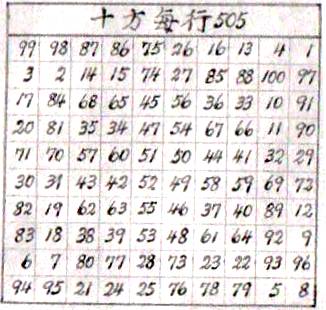 十方每行505
99 98 87 86 75 26 16 13 4 1
3 2 14 15 74 27 85 88 100 97
17 84 68 65 45 56 36 33 10 91
20 81 35 34 47 54 67 66 11 90
71 70 57 60 51 50 44 41 32 29
30 31 43 42 52 49 58 59 69 72
82 19 62 63 55 46 37 40 89 12
83 18 38 39 53 48 61 64 92 9
6 7 80 77 28 73 23 22 93 96
94 95 21 24 25 76 78 79 5 8